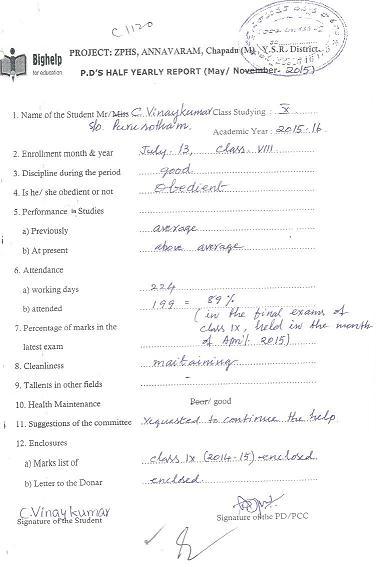 C 1120
Bighelp
for education
PROJECT: ZPHS, ANNAVARAM, Chapadu (M), Y.S.R. District.
P.D'S HALF YEARLY REPORT (May/ November- 2015)
1. Name of the Student Mr/Miss C. Vinaykumar Class Studying : X
S/o Purusotham. Academic Year : 2015-16
2. Enrollment month & year July-13, class VIII
3. Discipline during the period good
4. Is he/ she obedient or not obedient
5. Performance in Studies
a) Previously average
b) At present above average
6. Attendance
a) working days 224
b) attended 199 = 89%
7. Percentage of marks in the latest exam
(in the final exams of
class IX, held in the month
of April 2015)
8. Cleanliness maitaining
9. Tallents in other fields -
10. Health Maintenance Poor/ good
11. Suggestions of the committee requested to continue the help
12. Enclosures
a) Marks list of class IX (2014-15)-enclosed
b) Letter to the Donar enclosed
C. Vinaykumar
Signature of the Student Signature on the PD/PCC